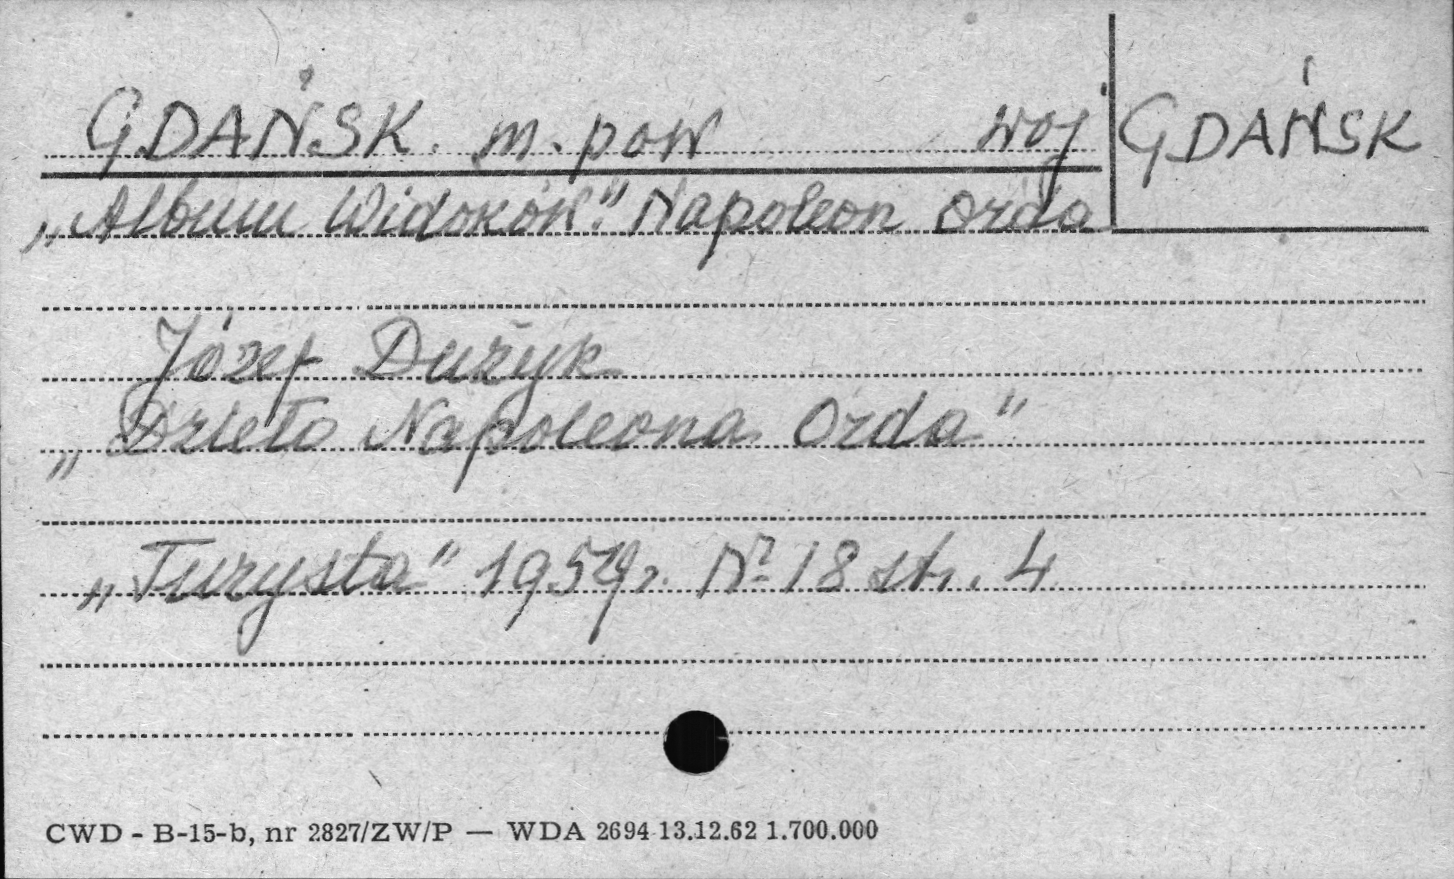 GDAŃSK. m. pow woj. GDAŃSK
„Album Widoków." Napoleon Orda
Józef Dużyk
„Dzieło Napoleona Orda"
„Turysta" 1959r. Nr 18 str. 4
CWD - B-15-b, nr 2827/ZW/P — WDA 2694 13.12.62 1.700.000